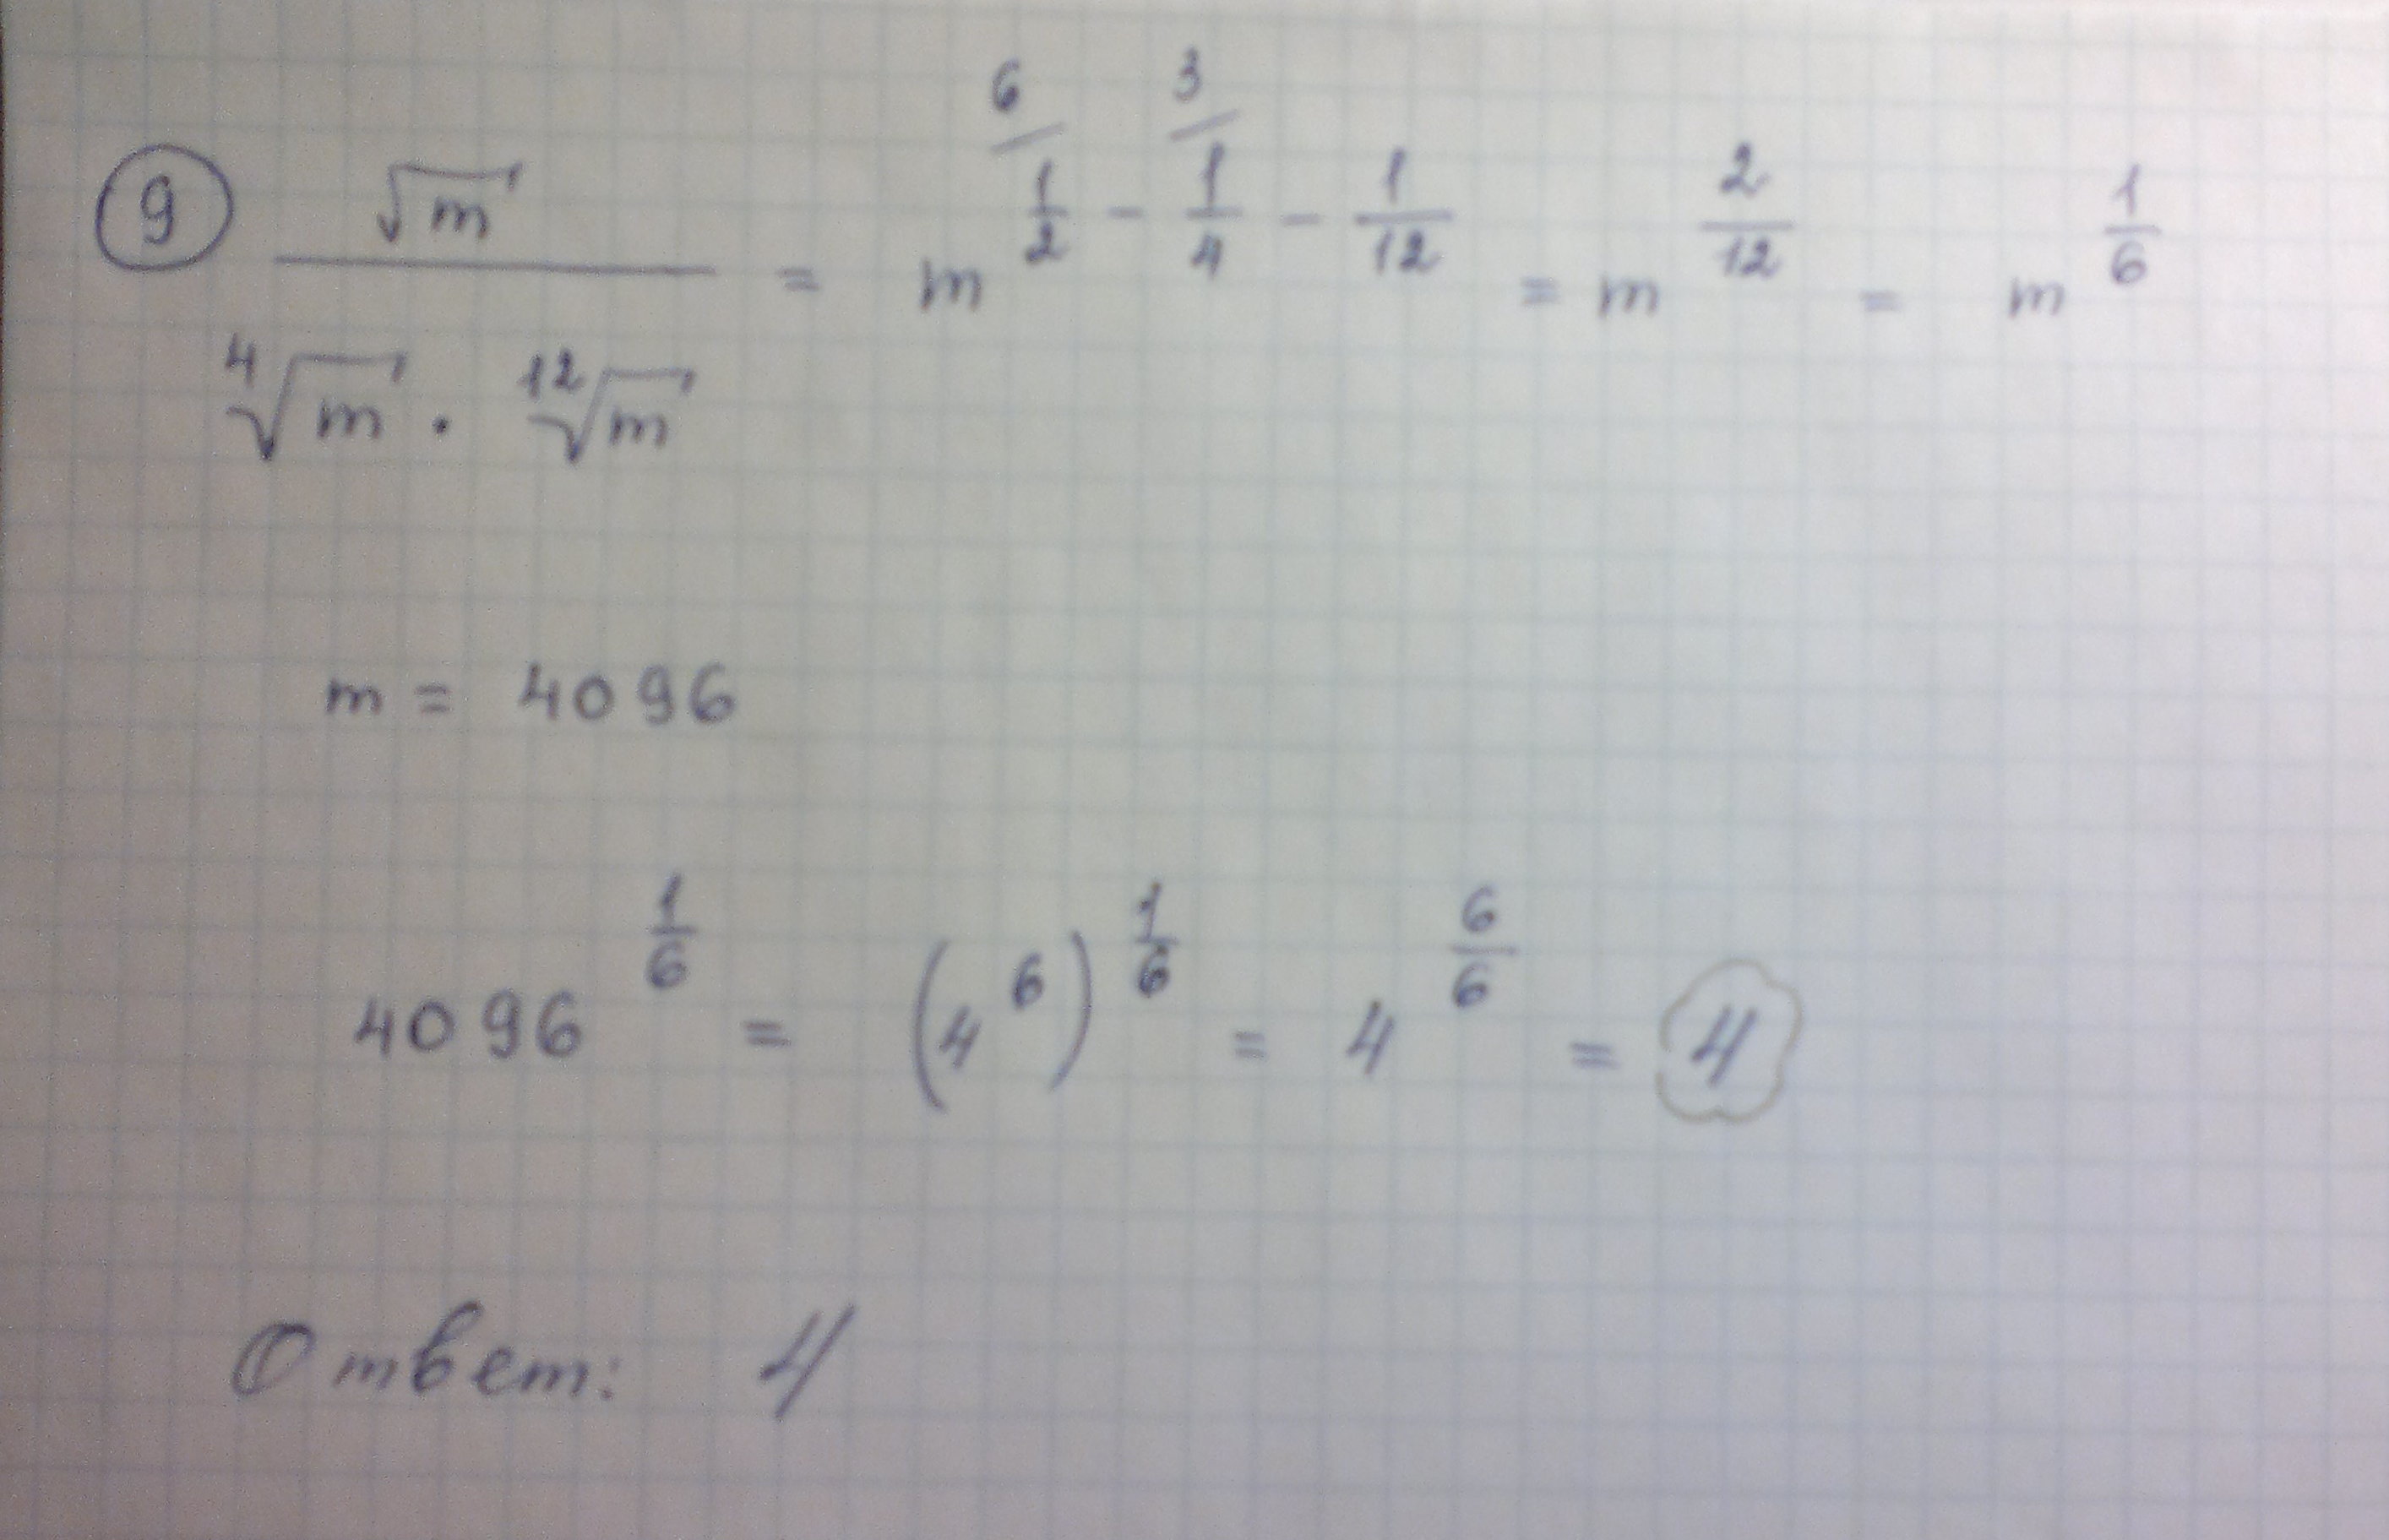 9 √m / (⁴√m · ¹²√m) = m^(⁶/1/2 - ³/1/4 - 1/12) = m^(2/12) = m^(1/6)
m = 4096
4096^(1/6) = (4^6)^(1/6) = 4^(6/6) = 4
Ответ: 4